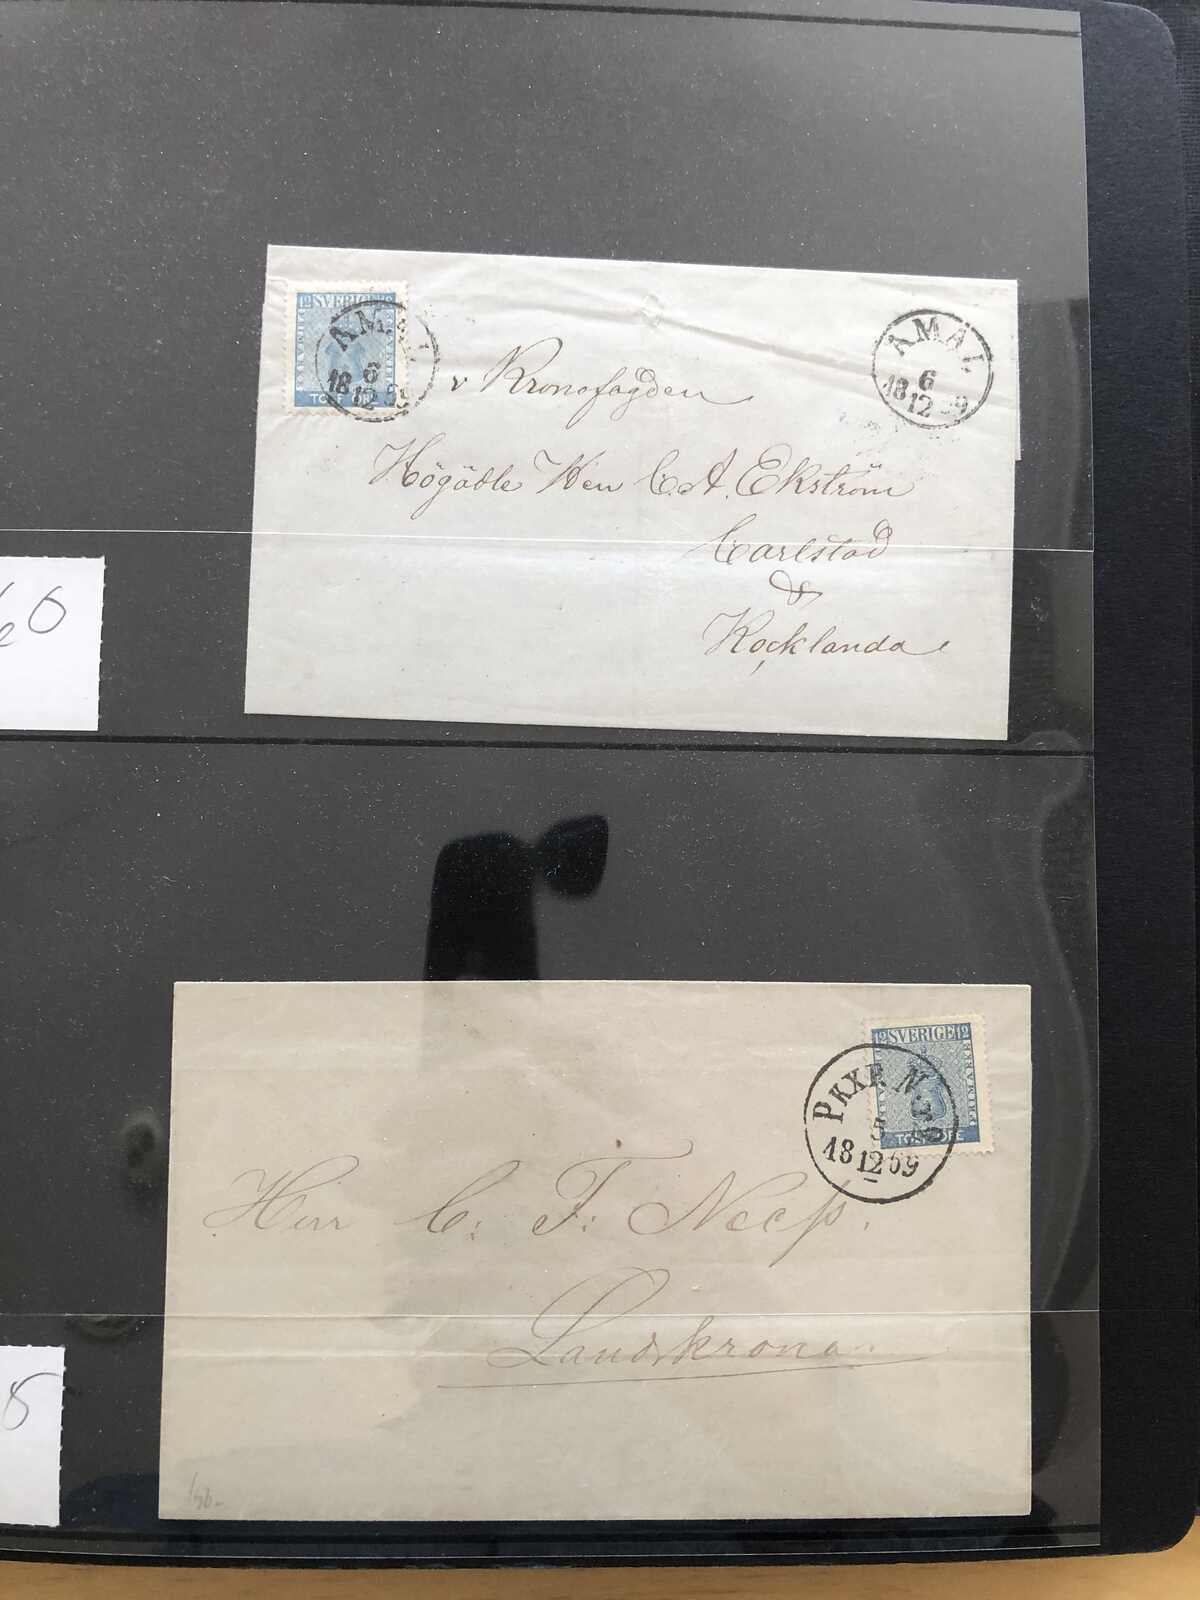 12 SVERIGE 12
TOLF ÖRE
ÅMÅL
6
18 12 69
ÅMÅL
6
18 12 69
v Kronofogden
Högädle Herr C. A. Ekström
Carlstad
&
Kocklanda
60
12 SVERIGE 12
TOLF ÖRE
PKXP. N:
5
18 12 69
Herr C: F:
Landskrona.
8